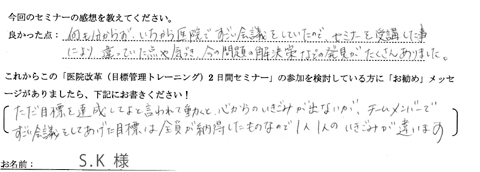 今回のセミナーの感想を教えてください。
良かった点： 何もわからず、いちから医院ですごい会議をしていたので、セミナーを受講した事
により 違っていた点や反省、今の問題の解決策などの発見がたくさんありました。
これからこの「医院改革（目標管理トレーニング）２日間セミナー」の参加を検討している方に「お勧め」メッセ
ージがありましたら、下記にお書きください！
ただ目標を達成してよと言われて動くと、心からのいきごみが出ないが、チームメンバーで
すごい会議をしてあげた目標は全員が納得したものなので1人1人のいきごみが違います
お名前： S.K 様